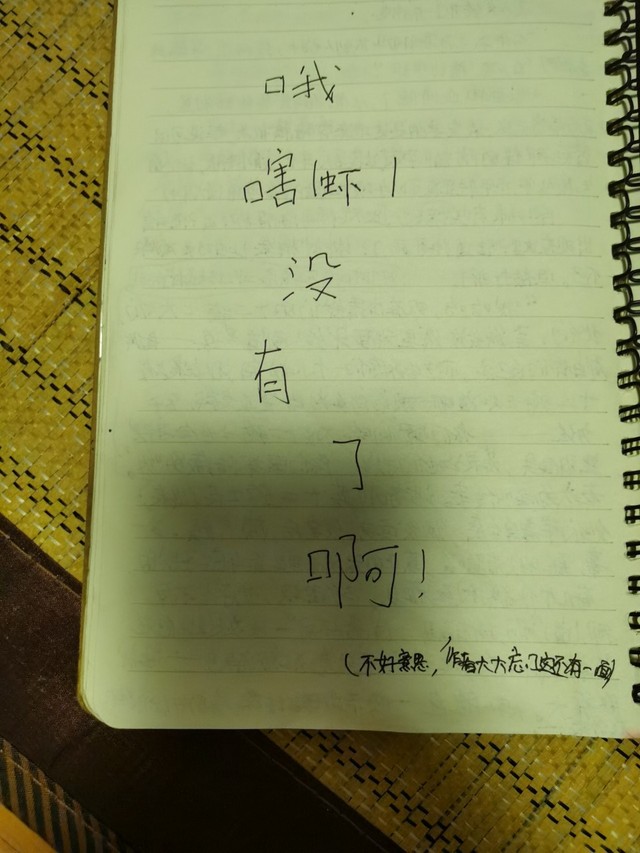 哦
嘻(虾)
没
有
了
啊!
(不好意思,作者大大忘了这还有一面)